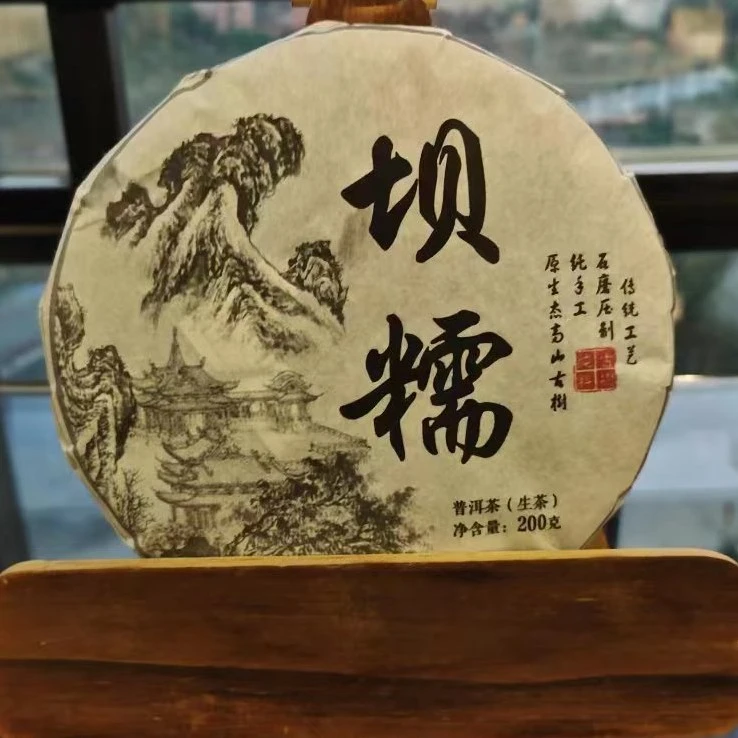 坝
糯
传统工艺
石磨压制
纯手工
原生态高山古樹
普洱茶（生茶）
净含量：200克